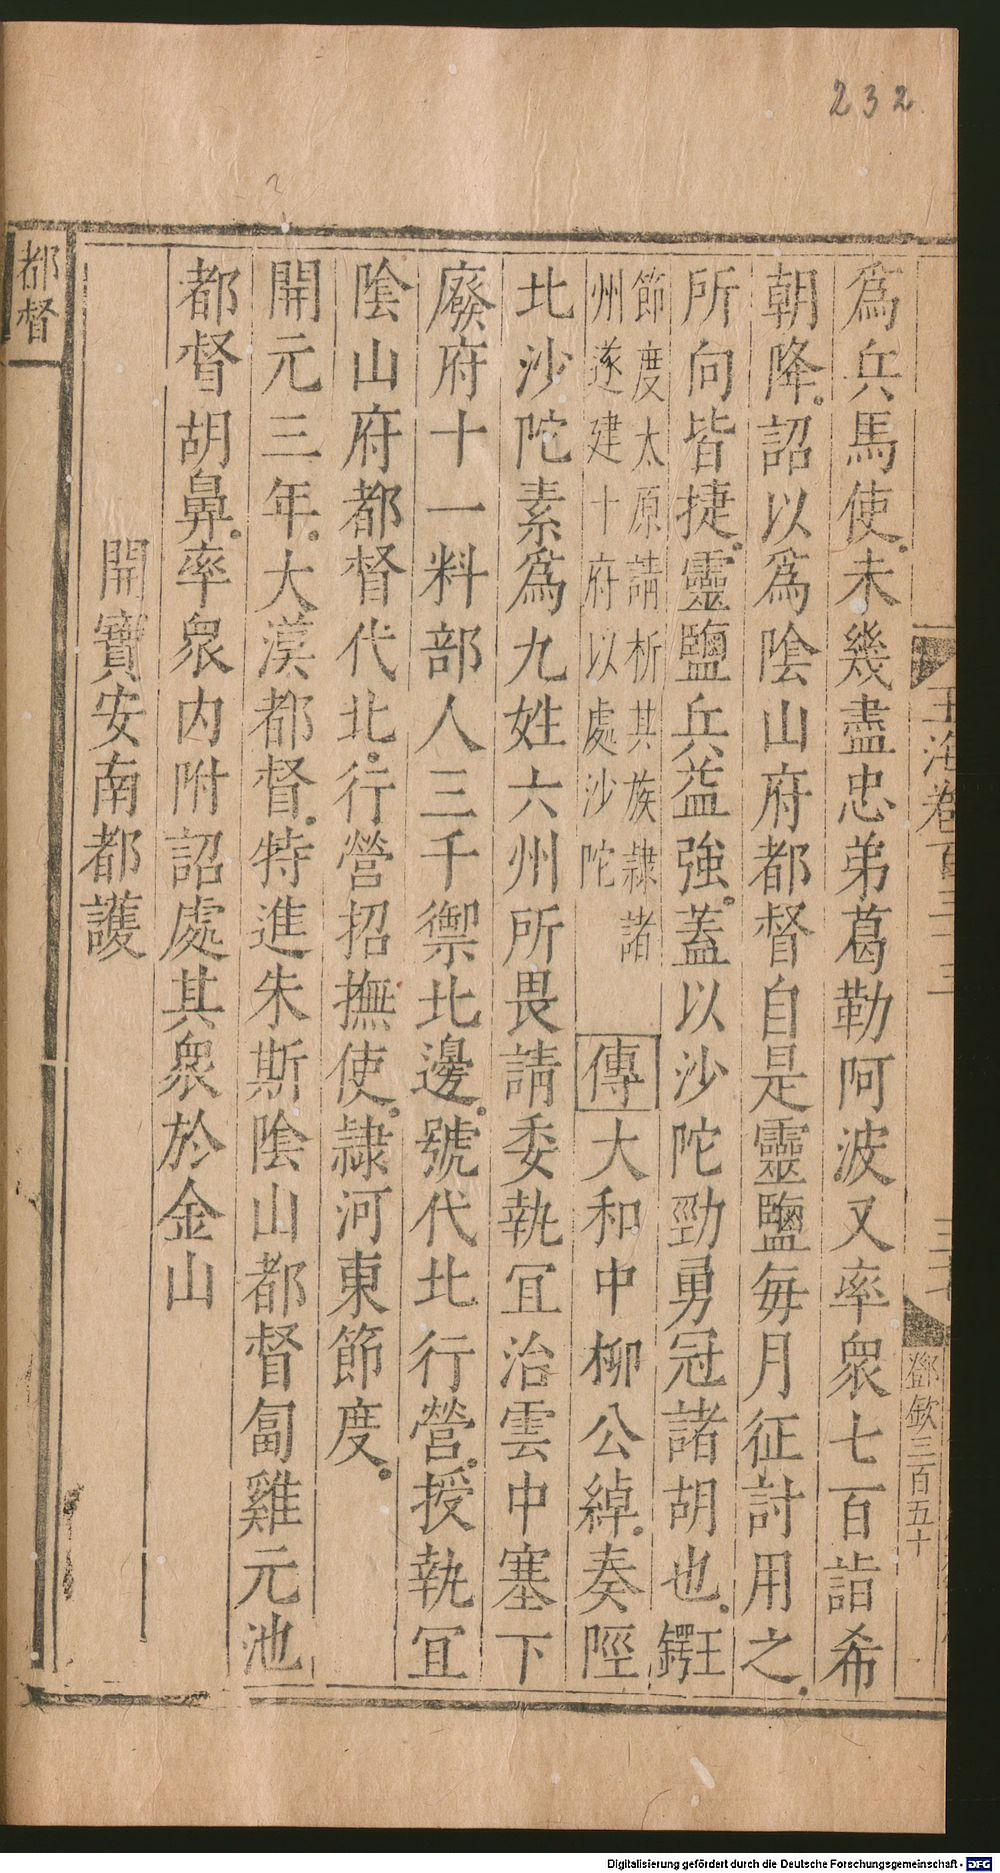 232
玉海卷百三十三
鄧欽三百五十
爲兵馬使。未幾盡忠弟葛勒阿波又率衆七百詣希
朝降。詔以爲陰山府都督自是靈鹽每月征討用之。
所向皆捷。靈鹽兵益強。蓋以沙陀勁勇冠諸胡也。王鍔
節度太原請析其族隸諸
州遂建十府以處沙陀
傳大和中柳公綽。奏陘
北沙陀素爲九姓六州所畏請委執冝治雲中塞下
廢府十一料部人三千禦北邊。號代北行營。授執冝
陰山府都督代北。行營招撫使。隷河東節度。
開元三年。大漠都督。特進朱斯陰山都督匐雞元池
都督胡鼻。率衆内附詔處其衆於金山
開寶安南都護
都督
Digitalisierung gefördert durch die Deutsche Forschungsgemeinschaft - DFG